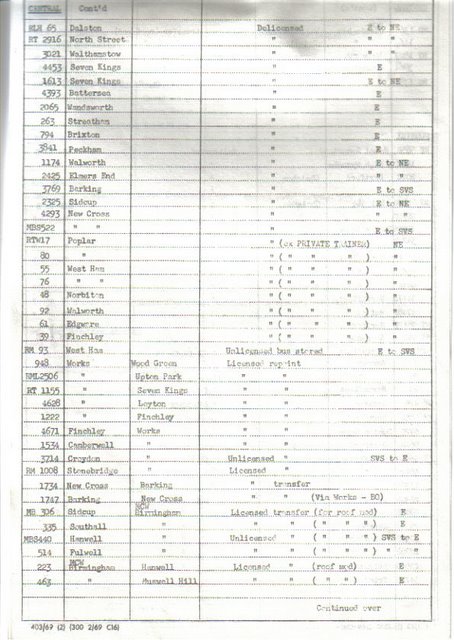 CENTRAL Cont'd
RLH 65 Dalston Delicensed E to NE
RT 2916 North Street " " "
3021 Walthamstow " " "
4453 Seven Kings " E
1613 Seven Kings " E to NE
4393 Battersea " E
2065 Wandsworth " E
263 Streatham " E
794 Brixton " E
3841 Peckham " E
1174 Walworth " E to NE
2425 Elmers End " " "
3769 Barking " E to SVS
2325 Sidcup " E to NE
4293 New Cross " " "
MBS522 " " " E to SVS
RTW17 Poplar " (ex PRIVATE TRAINER) NE
80 " " ( " " " ) "
55 West Ham " ( " " " ) "
76 " " " ( " " " ) "
48 Norbiton " ( " " " ) "
92 Walworth " ( " " " ) "
61 Edgware " ( " " " ) "
39 Finchley " ( " " " ) "
RM 93 West Ham Unlicensed bus stored E to SVS
948 Works Wood Green Licensed repaint
RML2506 " Upton Park " "
RT 1155 " Seven Kings " "
4628 " Leyton " "
1222 " Finchley " "
4671 Finchley Works " "
1534 Camberwell " " "
3714 Croydon " Unlicensed " SVS to E
RM 1008 Stonebridge " Licensed "
1734 New Cross Barking " transfer
1747 Barking New Cross " " (Via Works - BO)
MB 306 Sidcup MCW Birmingham Licensed transfer (for roof mod) E
335 Southall " " " ( " " " ) E
MBS440 Hanwell " Unlicensed " ( " " " ) SVS to E
514 Fulwell " " " ( " " " ) " "
223 MCW Birmingham Hanwell Licensed " (roof mod) E
463 " Muswell Hill " " ( " " ) E
Continued over
403/69 (2) (300 2/69 C16)